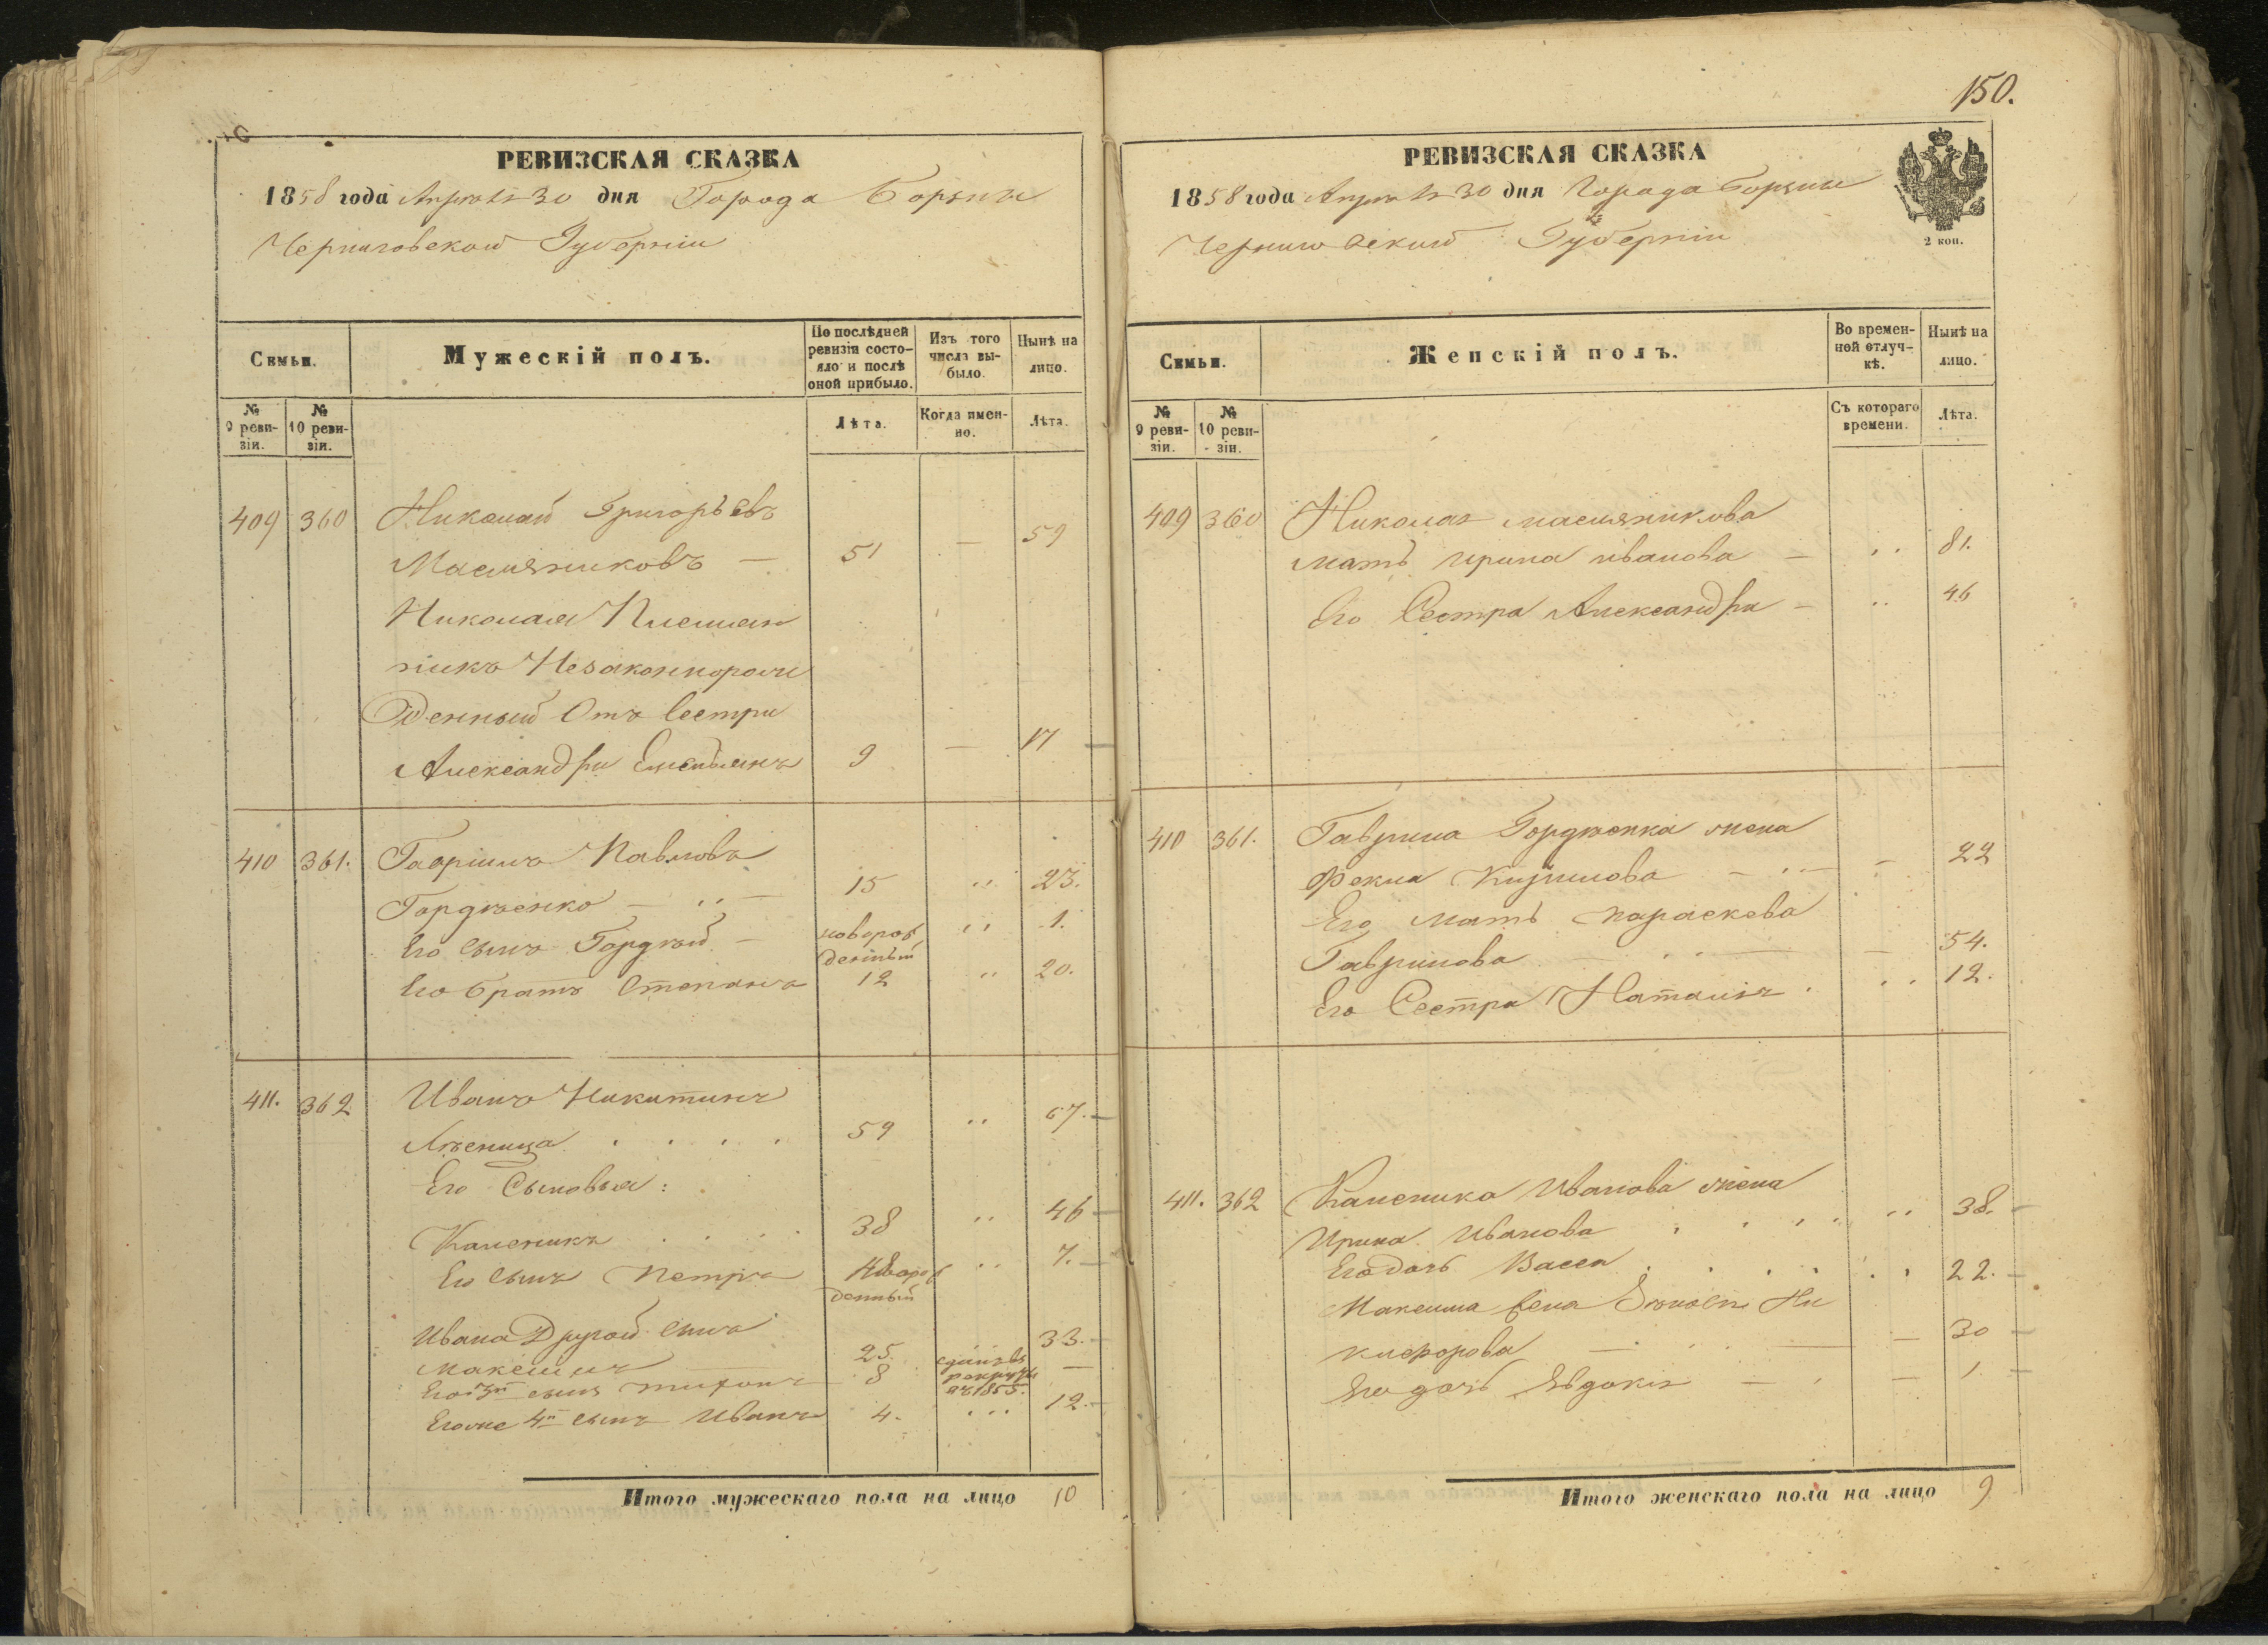 150.
РЕВИЗСКАЯ СКАЗКА
1858 года Апреля 30 дня Города Борзны
Черниговской Губерніи
Семьи.
Мужескій полъ.
По послѣдней ревизіи состояло и послѣ оной прибыло.
Изъ того числа выбыло.
Нынѣ на лицо.
№ 9 ревизіи.
№ 10 ревизіи.
Лѣта.
Когда именно.
Лѣта.
409 360 Николай Григорьевъ
Масляниковъ — 51 — 59
Николая Племян
никъ Незаконнорож
денный Отъ Сестри
Александри Емельянъ 9 — 17
410 361. Гавріилъ Павловъ
Гордѣенко — 15 23.
Его сынъ Гордѣй — новорож
денный 1.
Его братъ Степанъ 12 20.
411. 362 Иванъ Никитинъ
59 67.
Его Сыновья:
Каленикъ 38 46
Его сынъ Петръ новорож
денный 7.
Ивана Другой сынъ
Максимъ 25 33.
Его 3й сынъ Тихонъ 8 сданъ въ рекруты въ 1855. —
Егоже 4й сынъ Иванъ 4. 12.
Итого мужескаго пола на лицо 10
РЕВИЗСКАЯ СКАЗКА
1858 года Апреля 30 дня Города Борзны
Черниговской Губерніи
2 коп.
Семьи.
Женскій полъ.
Во временной отлучкѣ.
Нынѣ на лицо.
№ 9 ревизіи.
№ 10 ревизіи.
Съ котораго времени.
Лѣта.
409 360 Николая Масляникова
мать Ирина Иванова — 81.
Его Сестра Александра — 46
410 361. Гаврила Гордѣенка жена
Фекла Кирилова — 22
Его Мать Параскева
Гаврилова — 54.
Его Сестра Наталія 12.
411. 362 Каленика Иванова жена
Ирина Иванова 38.
Его дочь Васса 22.
Максима жена Ни
кифорова — 30
Его дочь Евдокія — 1
Итого женскаго пола на лицо 9